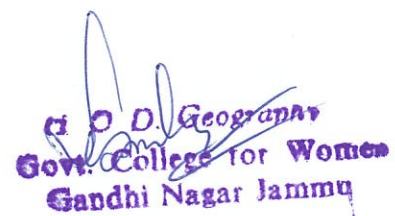 H O D. Geography
Govt. College for Women
Gandhi Nagar Jammu